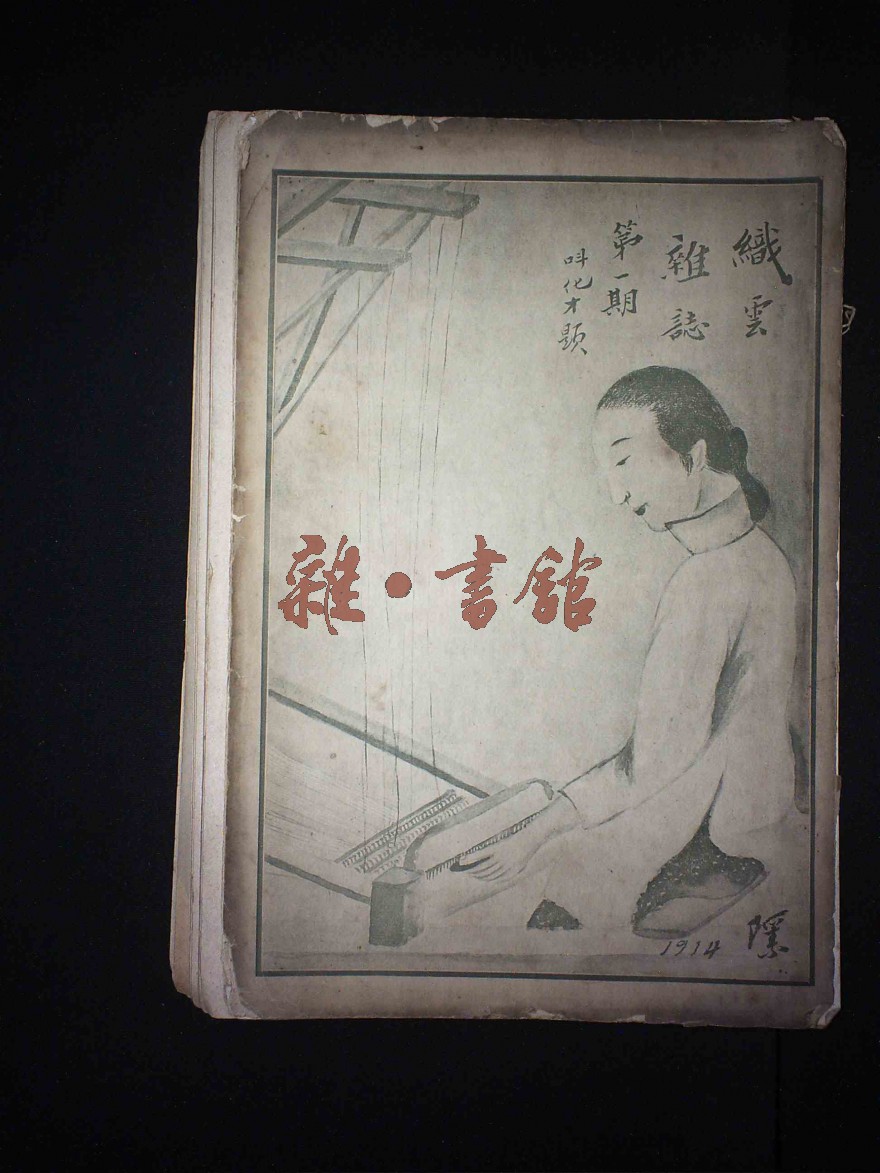 織雲
雜誌
第一期
呌化才題
雜·書館
1914